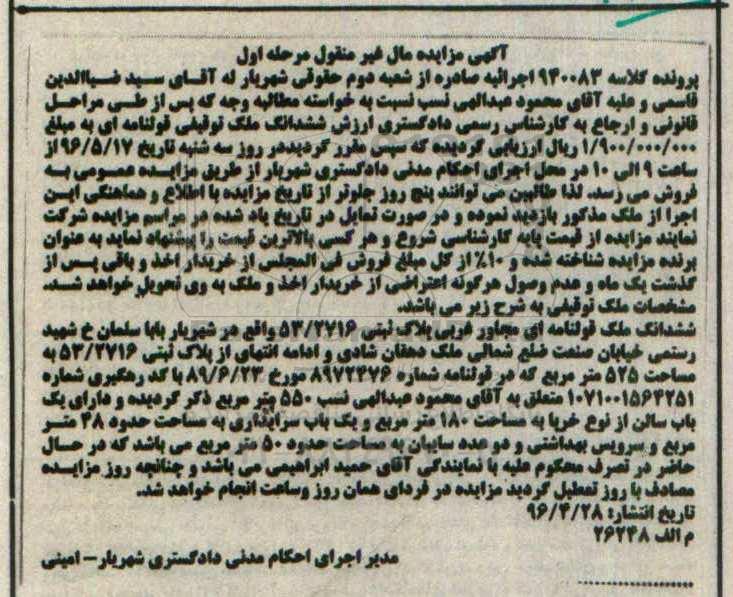 آگهی مزایده مال غیر منقول مرحله اول
پرونده کلاسه ۹۴۰۰۸۳ اجرائیه صادره از شعبه دوم حقوقی شهریار له آقای سید ضیاالدین
قاسمی و علیه آقای محمود عبدالهی نسب نسبت به خواسته مطالبه وجه که پس از طی مراحل
قانونی و ارجاع به کارشناس رسمی دادگستری ارزش ششدانگ ملک توقیفی قولنامه ای به مبلغ
۱/۹۰۰/۰۰۰/۰۰۰ ریال ارزیابی گردیده که سپس مقرر گردیددر روز سه شنبه تاریخ ۹۶/۵/۱۷ از
ساعت ۹ الی ۱۰ در محل اجرای احکام مدنی دادگستری شهریار از طریق مزایده عمومی به
فروش می رسد. لذا طالبین می توانند پنج روز جلوتر از تاریخ مزایده با اطلاع و هماهنگی این
اجرا از ملک مذکور بازدید نموده و در صورت تمایل در تاریخ یاد شده در مراسم مزایده شرکت
نمایند مزایده از قیمت پایه کارشناسی شروع و هر کسی بالاترین قیمت را پیشنهاد نماید به عنوان
برنده مزایده شناخته شده و ۱۰٪ از کل مبلغ فروش فی المجلس از خریدار اخذ و باقی پس از
گذشت یک ماه و عدم وصول هرگونه اعتراضی از خریدار اخذ و ملک به وی تحویل خواهد شد.
مشخصات ملک توقیفی به شرح زیر می باشد.
ششدانگ ملک قولنامه ای مجاور غربی پلاک ثبتی ۵۳/۲۷۱۶ واقع در شهریار بابا سلمان خ شهید
رستمی خیابان صنعت ضلع شمالی ملک دهقان شادی و ادامه انتهای از پلاک ثبتی ۵۳/۲۷۱۶ به
مساحت ۵۲۵ متر مربع که در قولنامه شماره ۸۹۷۲۴۷۶ مورخ ۸۹/۶/۲۳ با کد رهگیری شماره
۱۰۷۱۰۰۱۵۶۴۲۵۱ متعلق به آقای محمود عبدالهی نسب ۵۵۰ متر مربع ذکر گردیده و دارای یک
باب سالن از نوع خرپا به مساحت ۱۸۰ متر مربع و یک باب سرایداری به مساحت حدود ۴۸ متر
مربع و سرویس بهداشتی و دو عدد سایبان به مساحت حدود ۵۰ متر مربع می باشد که در حال
حاضر در تصرف محکوم علیه با نمایندگی آقای حمید ابراهیمی می باشد و چنانچه روز مزایده
مصادف با روز تعطیل گردید مزایده در فردای همان روز وساعت انجام خواهد شد.
تاریخ انتشار: ۹۶/۴/۲۸
م الف ۲۶۲۴۸
مدیر اجرای احکام مدنی دادگستری شهریار– امینی